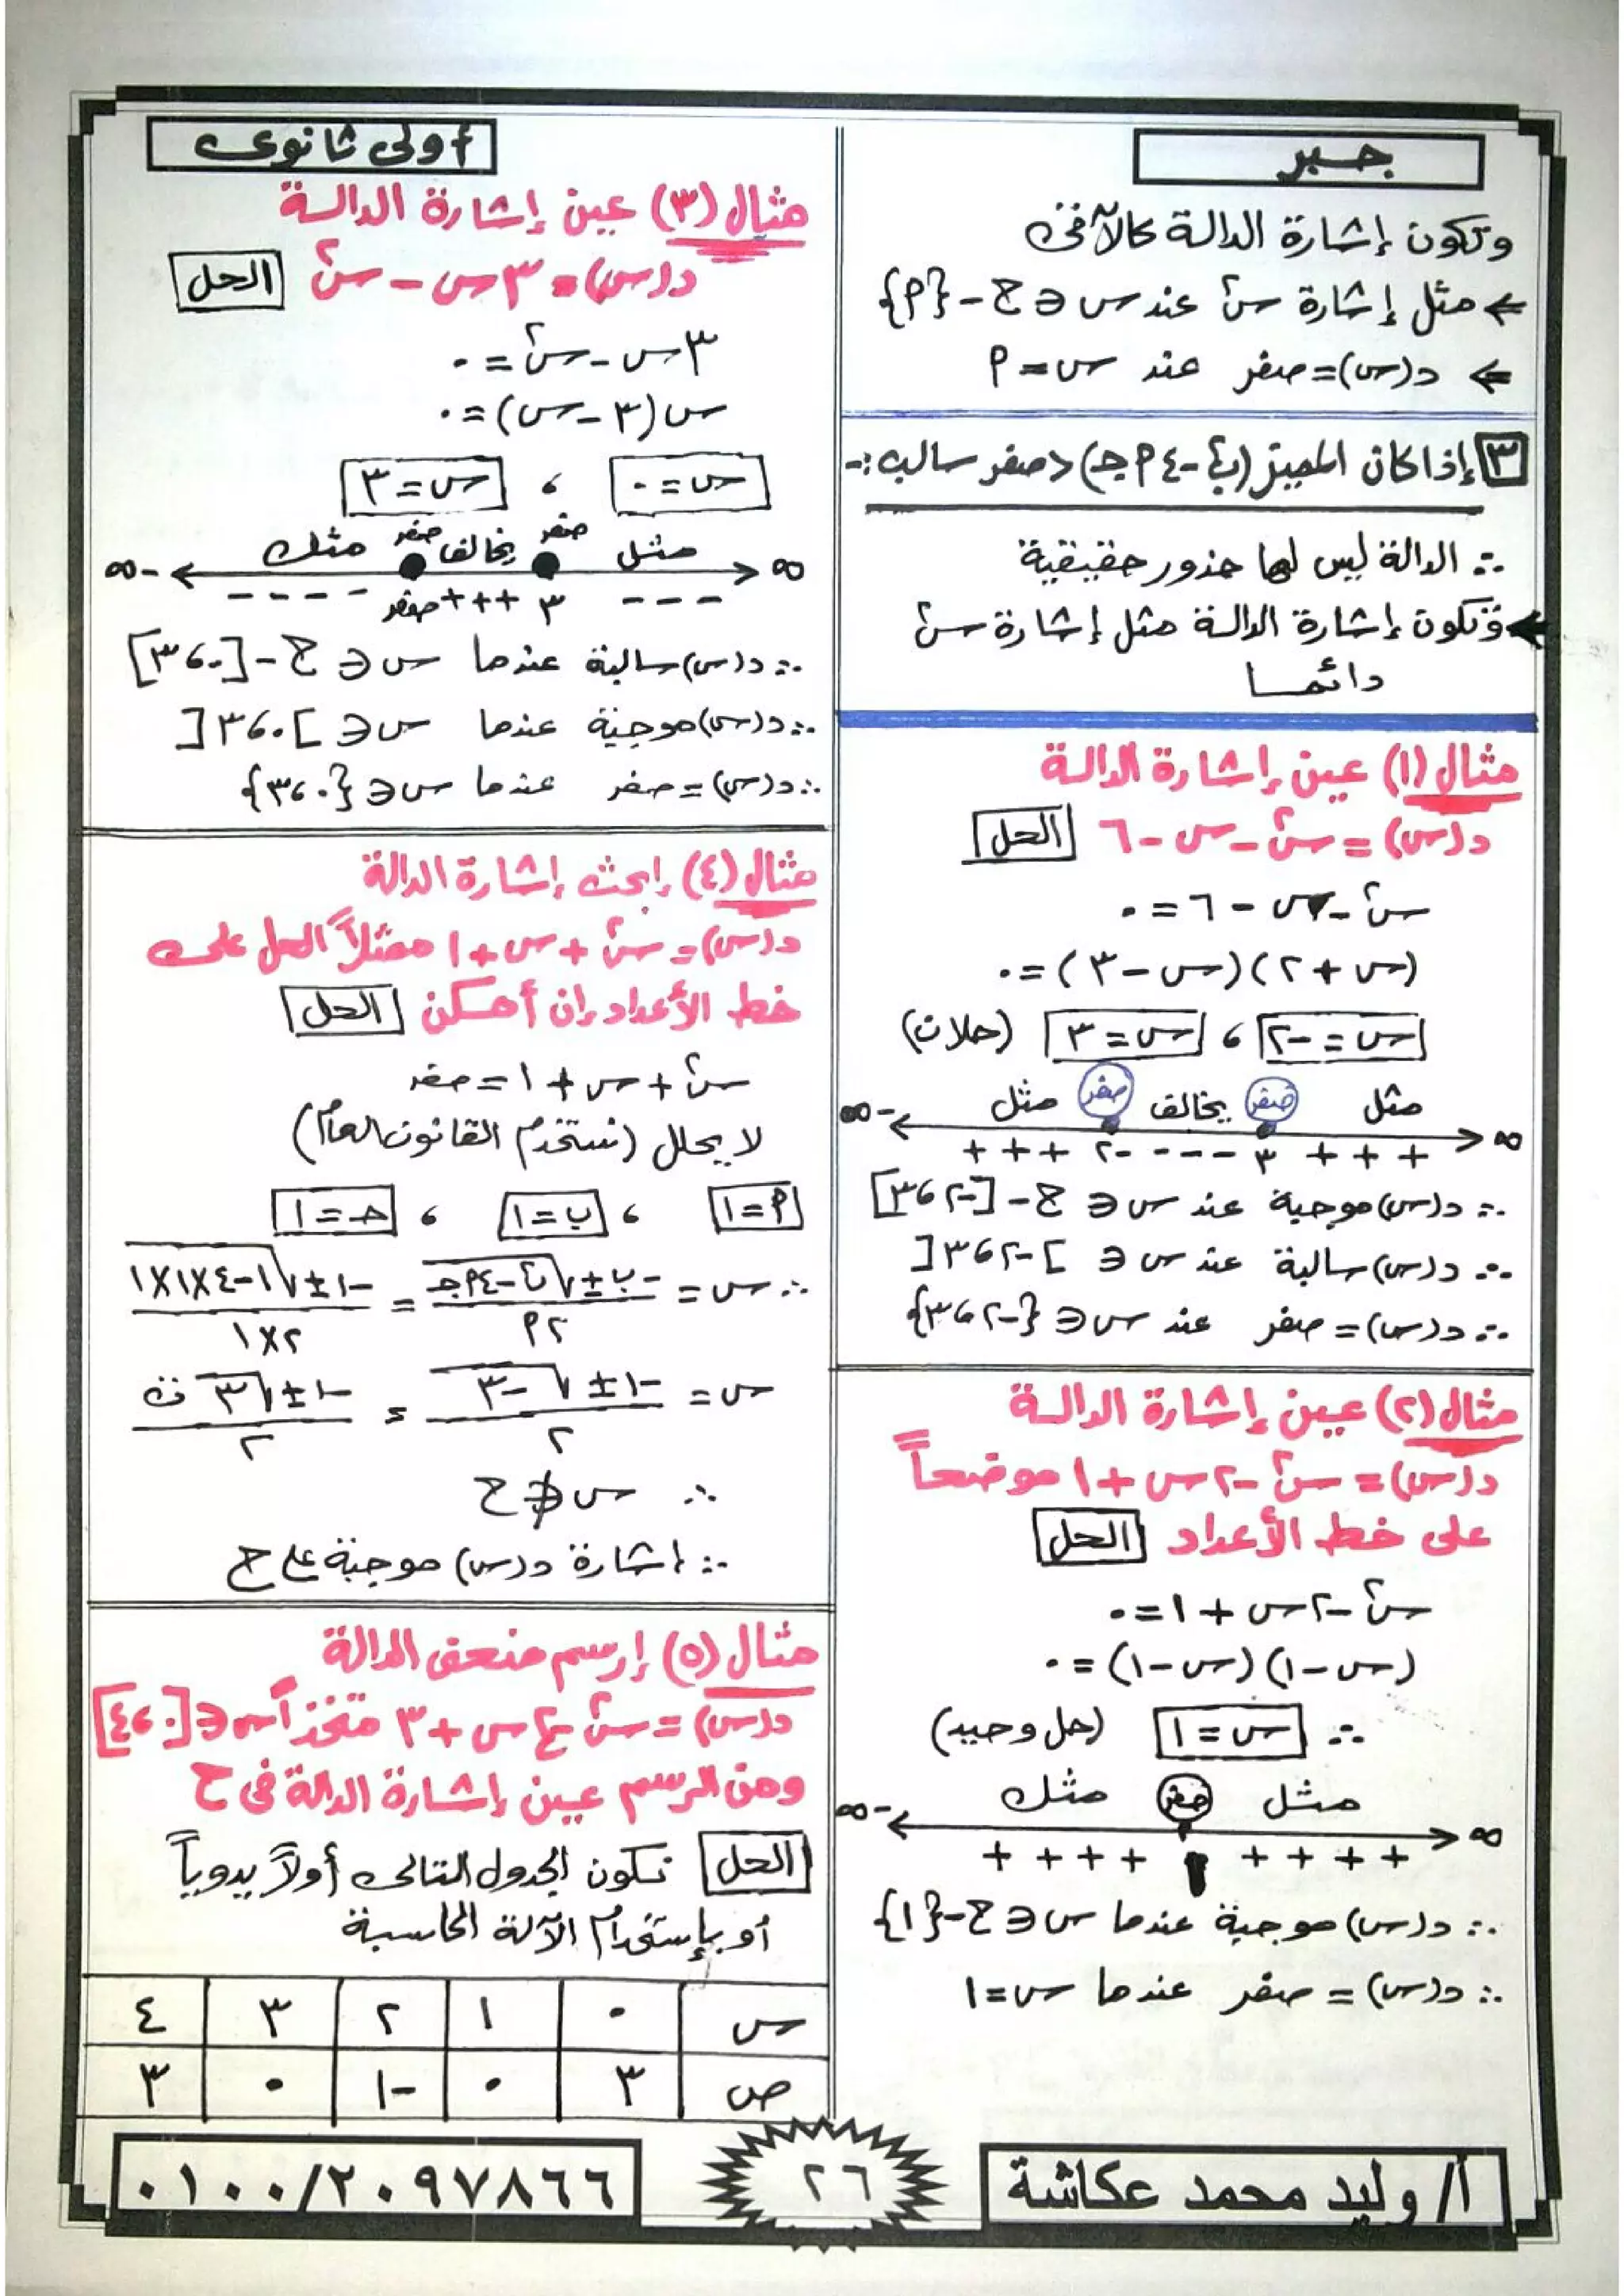 جبر
وتكون إشارة الدالة كالآتى
← مثل إشارة س٢ عند س ∈ ح - {٩}
← د(س) = صفر عند س = ٩
٣ إذا كان المميز (ب٢ - ٤ ٩ جـ) > صفر سالب :-
∴ الدالة ليس لها جذور حقيقية
← وتكون إشارة الدالة مثل إشارة س٢
دائمـا
مثال (١) عين إشارة الدالة
د(س) = س٢ - س - ٦ الحل
س٢ - س - ٦ = ٠
(س + ٢) (س - ٣) = ٠
س = -٢ ، س = ٣ (حلان)
مثل صفر يخالف صفر مثل
-∞ + + + -٢ - - - - ٣ + + + ∞
∴ د(س) موجبة عند س ∈ ح - [-٢ ، ٣]
∴ د(س) سالبة عند س ∈ ]-٢ ، ٣[
∴ د(س) = صفر عند س ∈ {-٢ ، ٣}
مثال (٢) عين إشارة الدالة
د(س) = س٢ - ٢س + ١ موضحاً
على خط الأعداد الحل
س٢ - ٢س + ١ = ٠
(س - ١) (س - ١) = ٠
∴ س = ١ (حل وحيد)
مثل صفر مثل
-∞ + + + + ١ + + + + ∞
∴ د(س) موجبة عندما س ∈ ح - {١}
∴ د(س) = صفر عندما س = ١
أولى ثانوى
مثال (٣) عين إشارة الدالة
د(س) = ٣س - س٢ الحل
٣س - س٢ = ٠
س (٣ - س) = ٠
س = ٠ ، س = ٣
مثل صفر يخالف صفر مثل
-∞ - - - - صفر + + + ٣ - - - ∞
∴ د(س) سالبة عندما س ∈ ح - [٠ ، ٣]
∴ د(س) موجبة عندما س ∈ ]٠ ، ٣[
∴ د(س) = صفر عندما س ∈ {٠ ، ٣}
مثال (٤) إبحث إشارة الدالة
د(س) = س٢ + س + ١ ممثلاً الحل على
خط الأعداد إن أمكن الحل
س٢ + س + ١ = صفر
لا يحلل (نستخدم القانون العام)
٩ = ١ ، ب = ١ ، جـ = ١
∴ س = (-ب ± √(ب٢ - ٤ ٩ جـ)) / ٢٩ = (-١ ± √(١ - ٤×١×١)) / ٢×١
س = (-١ ± √-٣) / ٢ = (-١ ± √٣ ت) / ٢
∴ س ∉ ح
∴ إشارة د(س) موجبة على ح
مثال (٥) إرسم منحنى الدالة
د(س) = س٢ - ٤س + ٣ متخذاً س ∈ [٠ ، ٤]
ومن الرسم عين إشارة الدالة فى ح
الحل نكون الجدول التالى أولاً يدوياً
أو بإستخدام الآلة الحاسبة
س ٠ ١ ٢ ٣ ٤
ص ٣ ٠ -١ ٠ ٣
أ/ وليد محمد عكاشة
٢٦
٠١٠٠/٢٠٩٧٨٦٦